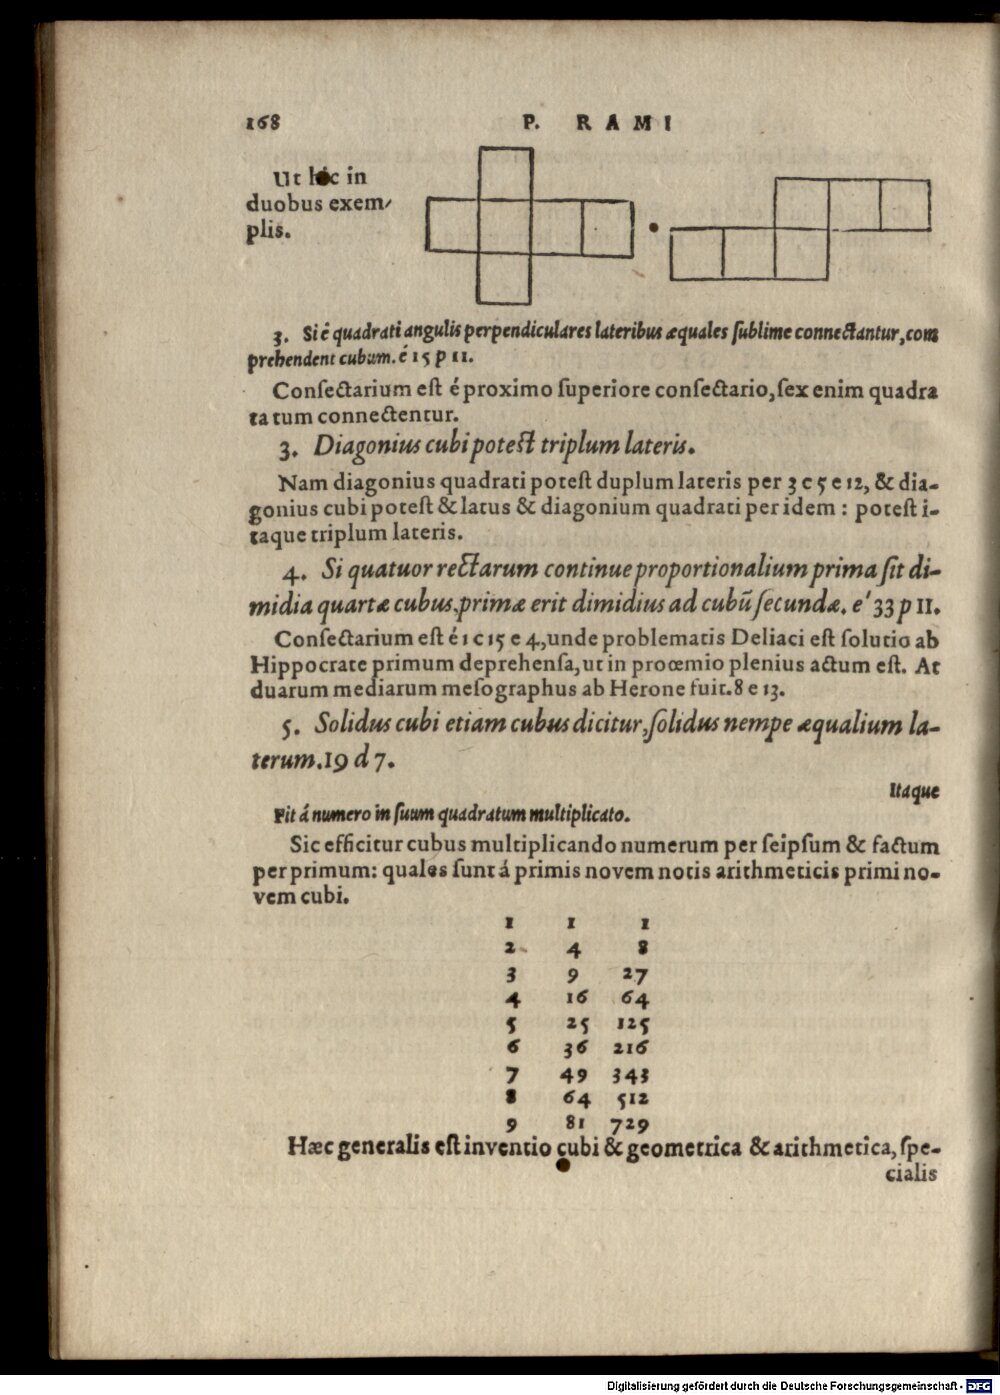 168 P. RAMI
Ut hic in
duobus exem⸗
plis.
3. Si é quadrati angulis perpendiculares lateribus æquales ſublime connectantur, com
prehendent cubum. é 15 p 11.
Conſectarium eſt é proximo ſuperiore conſectario, ſex enim quadra
ta tum connectentur.
3. Diagonius cubi poteſt triplum lateris.
Nam diagonius quadrati poteſt duplum lateris per 3 c 5 e 12, & dia-
gonius cubi poteſt & latus & diagonium quadrati per idem : poteſt i-
taque triplum lateris.
4. Si quatuor rectarum continue proportionalium prima ſit di-
midia quartæ cubus, primæ erit dimidius ad cubũ ſecundæ. e' 33 p 11.
Conſectarium eſt é 1 c 15 e 4, unde problematis Deliaci eſt ſolutio ab
Hippocrate primum deprehenſa, ut in proœmio plenius actum eſt. At
duarum mediarum meſographus ab Herone fuit. 8 e 13.
5. Solidus cubi etiam cubus dicitur, ſolidus nempe æqualium la-
terum. 19 d 7.
Itaque
Fit á numero in ſuum quadratum multiplicato.
Sic efficitur cubus multiplicando numerum per ſeipſum & factum
per primum: quales ſunt á primis novem notis arithmeticis primi no-
vem cubi.
1 1 1
2 4 8
3 9 27
4 16 64
5 25 125
6 36 216
7 49 343
8 64 512
9 81 729
Hæc generalis eſt inventio cubi & geometrica & arithmetica, ſpe-
cialis
Digitalisierung gefördert durch die Deutsche Forschungsgemeinschaft - DFG